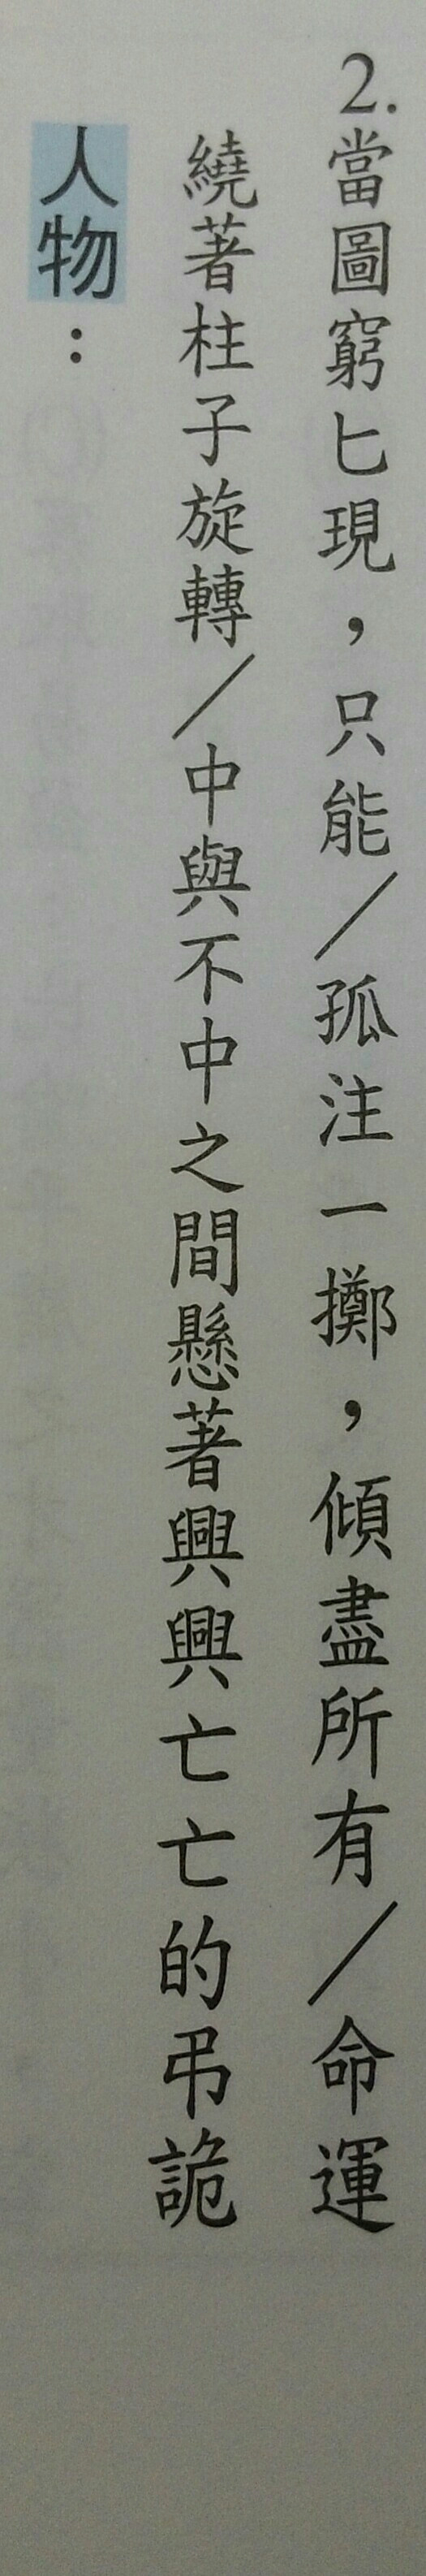 2.當圖窮匕現，只能／孤注一擲，傾盡所有／命運
繞著柱子旋轉／中與不中之間懸著興興亡亡的弔詭
人物：